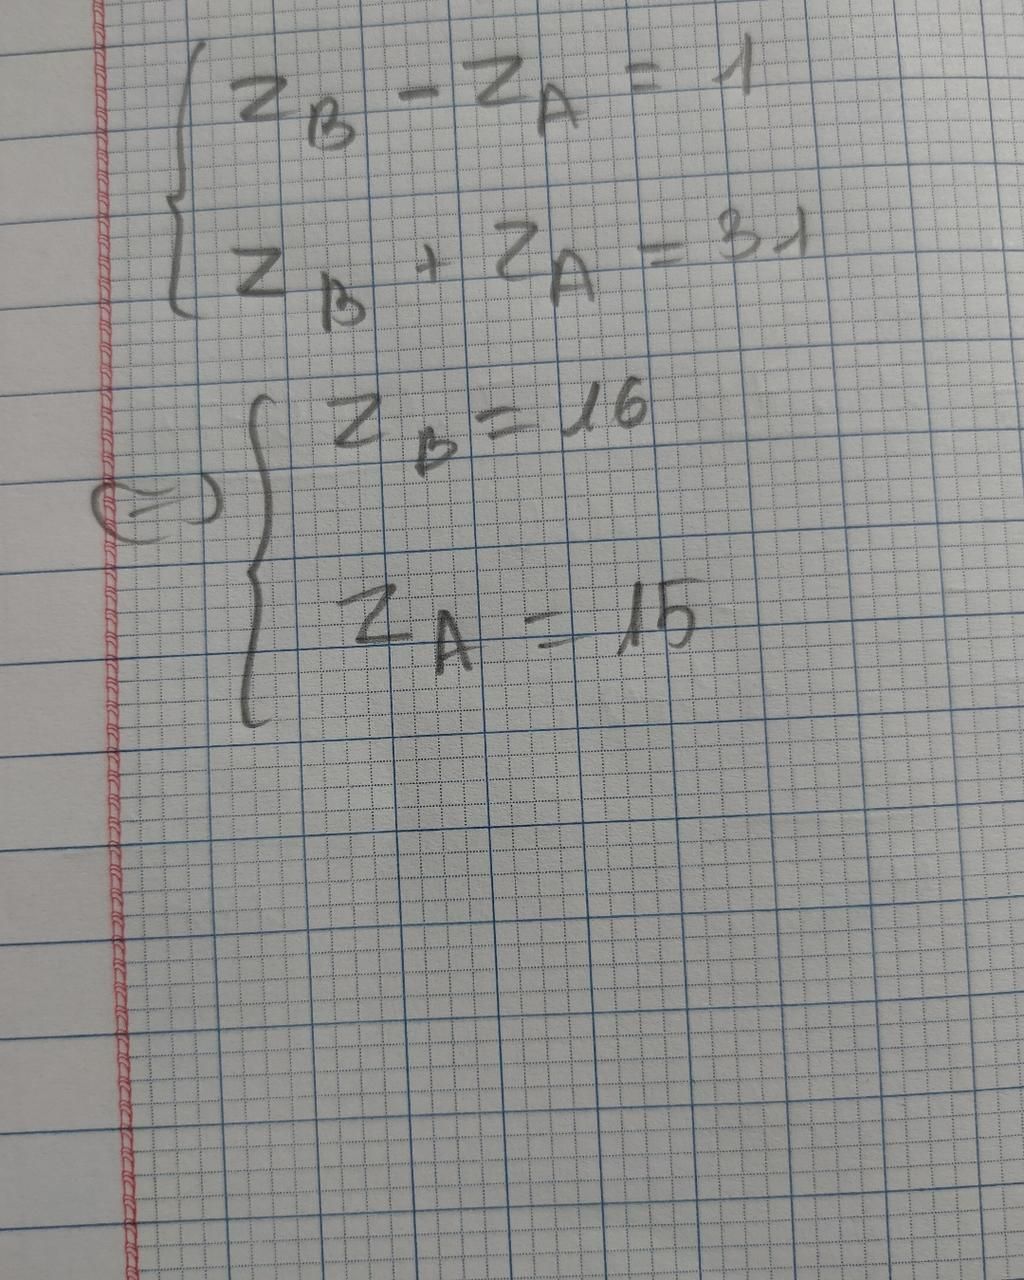 { Z_B - Z_A = 1
Z_B + Z_A = 31
<=> { Z_B = 16
Z_A = 15